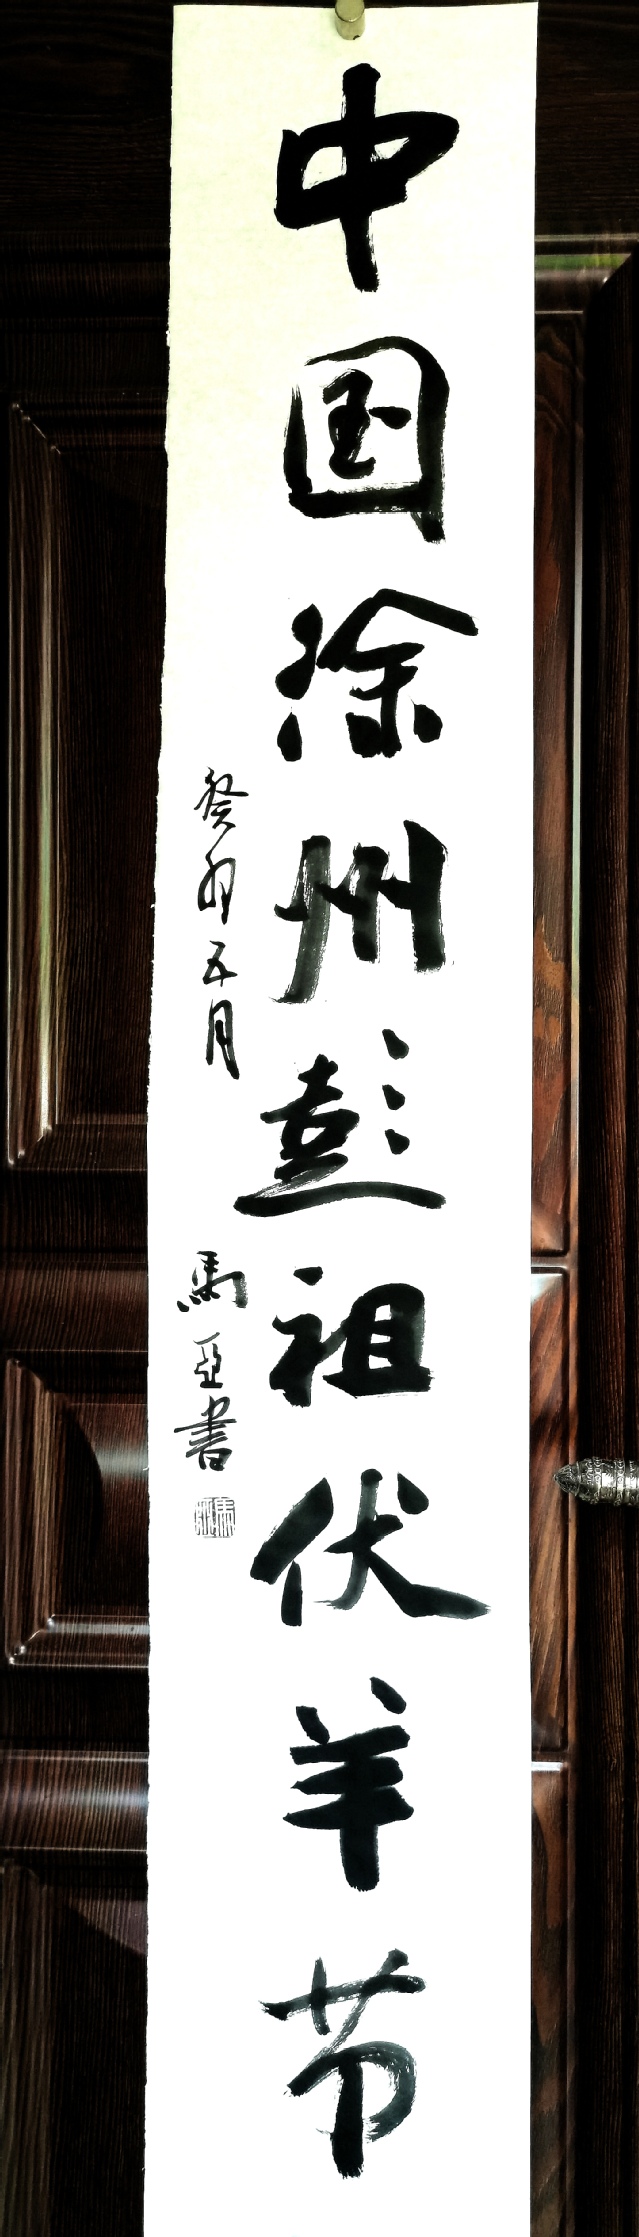 中国徐州彭祖伏羊节
癸卯五月
馬亚書